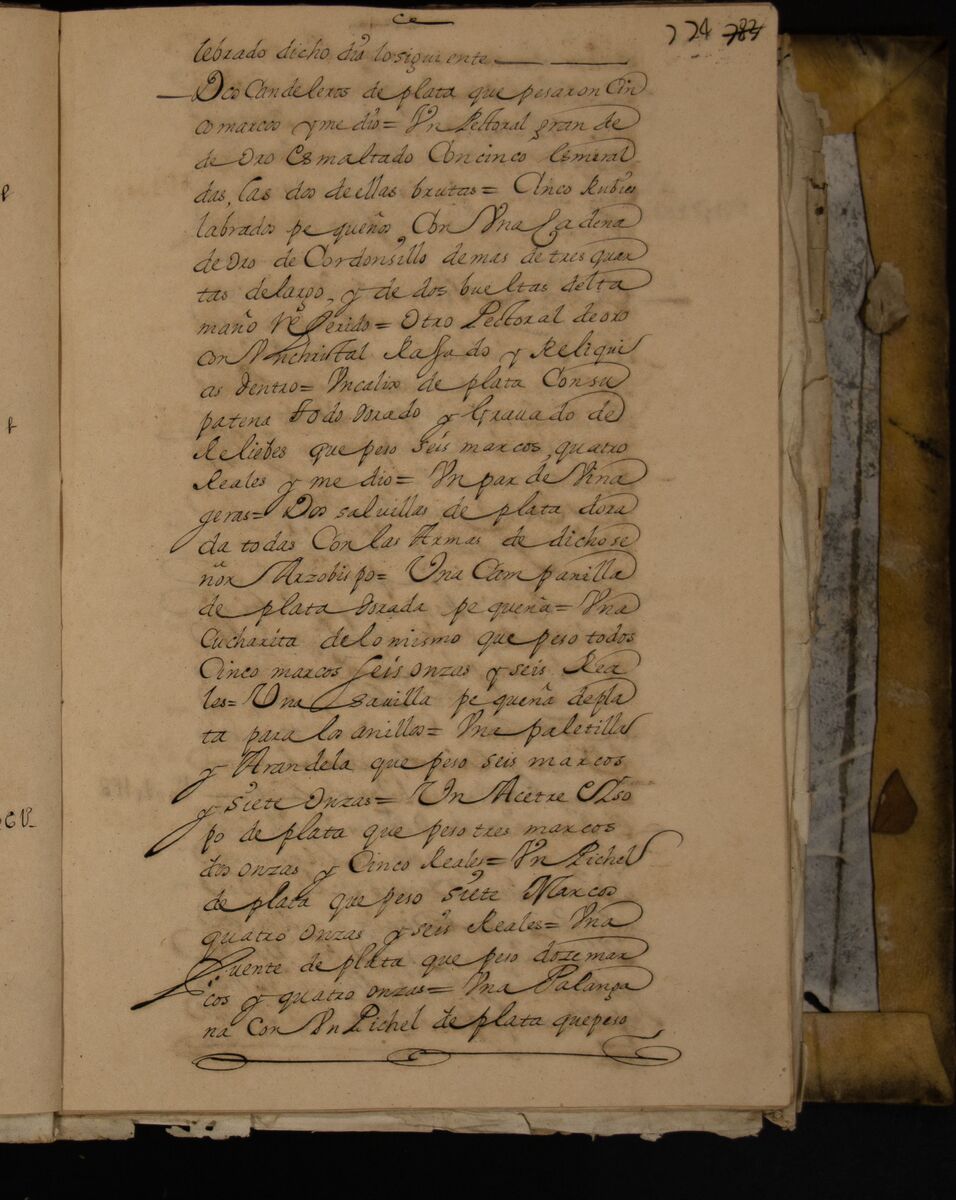 ce
224 783
lebrado dicho dia lo siguiente
Dos Candeleros de plata que pesaron Cin
co marcos y medio = Vn Pectoral grande
de Oro Esmaltado Con cinco Esmeral
das, las dos de ellas brutas = Cinco Rubies
labrados pequeños Con Vna Cadena
de Oro de Cordonsillo de mas de tres quar
tas de largo, y de dos bueltas del ta
maño referido = Otro Pectoral de oro
con Vn christal Rasgado y Reliqui
as dentro = Vn calix de plata Con su
patena todo dorado y Gravado de
Reliebes que peso seis marcos quatro
Reales y medio = Vn par de Vina
geras = Dos salvillas de plata dora
da todas Con las Armas de dicho se
ñor Arzobispo = Vna Campanilla
de plata dorada pequeña = Vna
Cucharita de lo mismo que peso todos
Cinco marcos seis onzas y seis Rea
les = Vna savilla pequeña de pla
ta para los anillos = Vna paletilla
y Arandela que peso seis marcos
y siete Onzas = Vn Acetre e Ysso
po de plata que peso tres marcos
dos onzas y Cinco Reales = Vn Pichel
de plata que peso siete Marcos
quatro Onzas y seis Reales = Vna
Fuente de plata que peso doze mar
cos y quatro onzas = Vna Palanga
na Con Vn Pichel de plata que peso